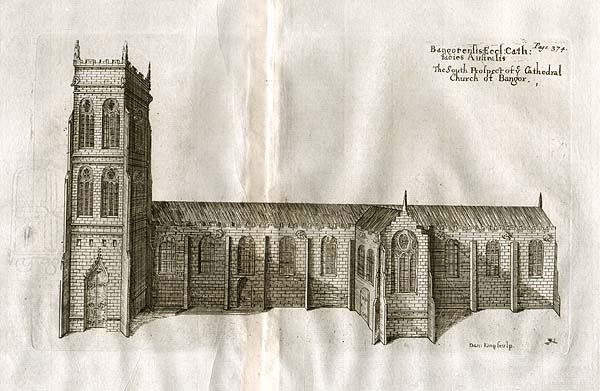 Bangorensis Eccl: Cath:
facies Australis
Page 374.
The South Prospect of yᵉ Cathedral
Church of Bangor.
Dan: King sculp.